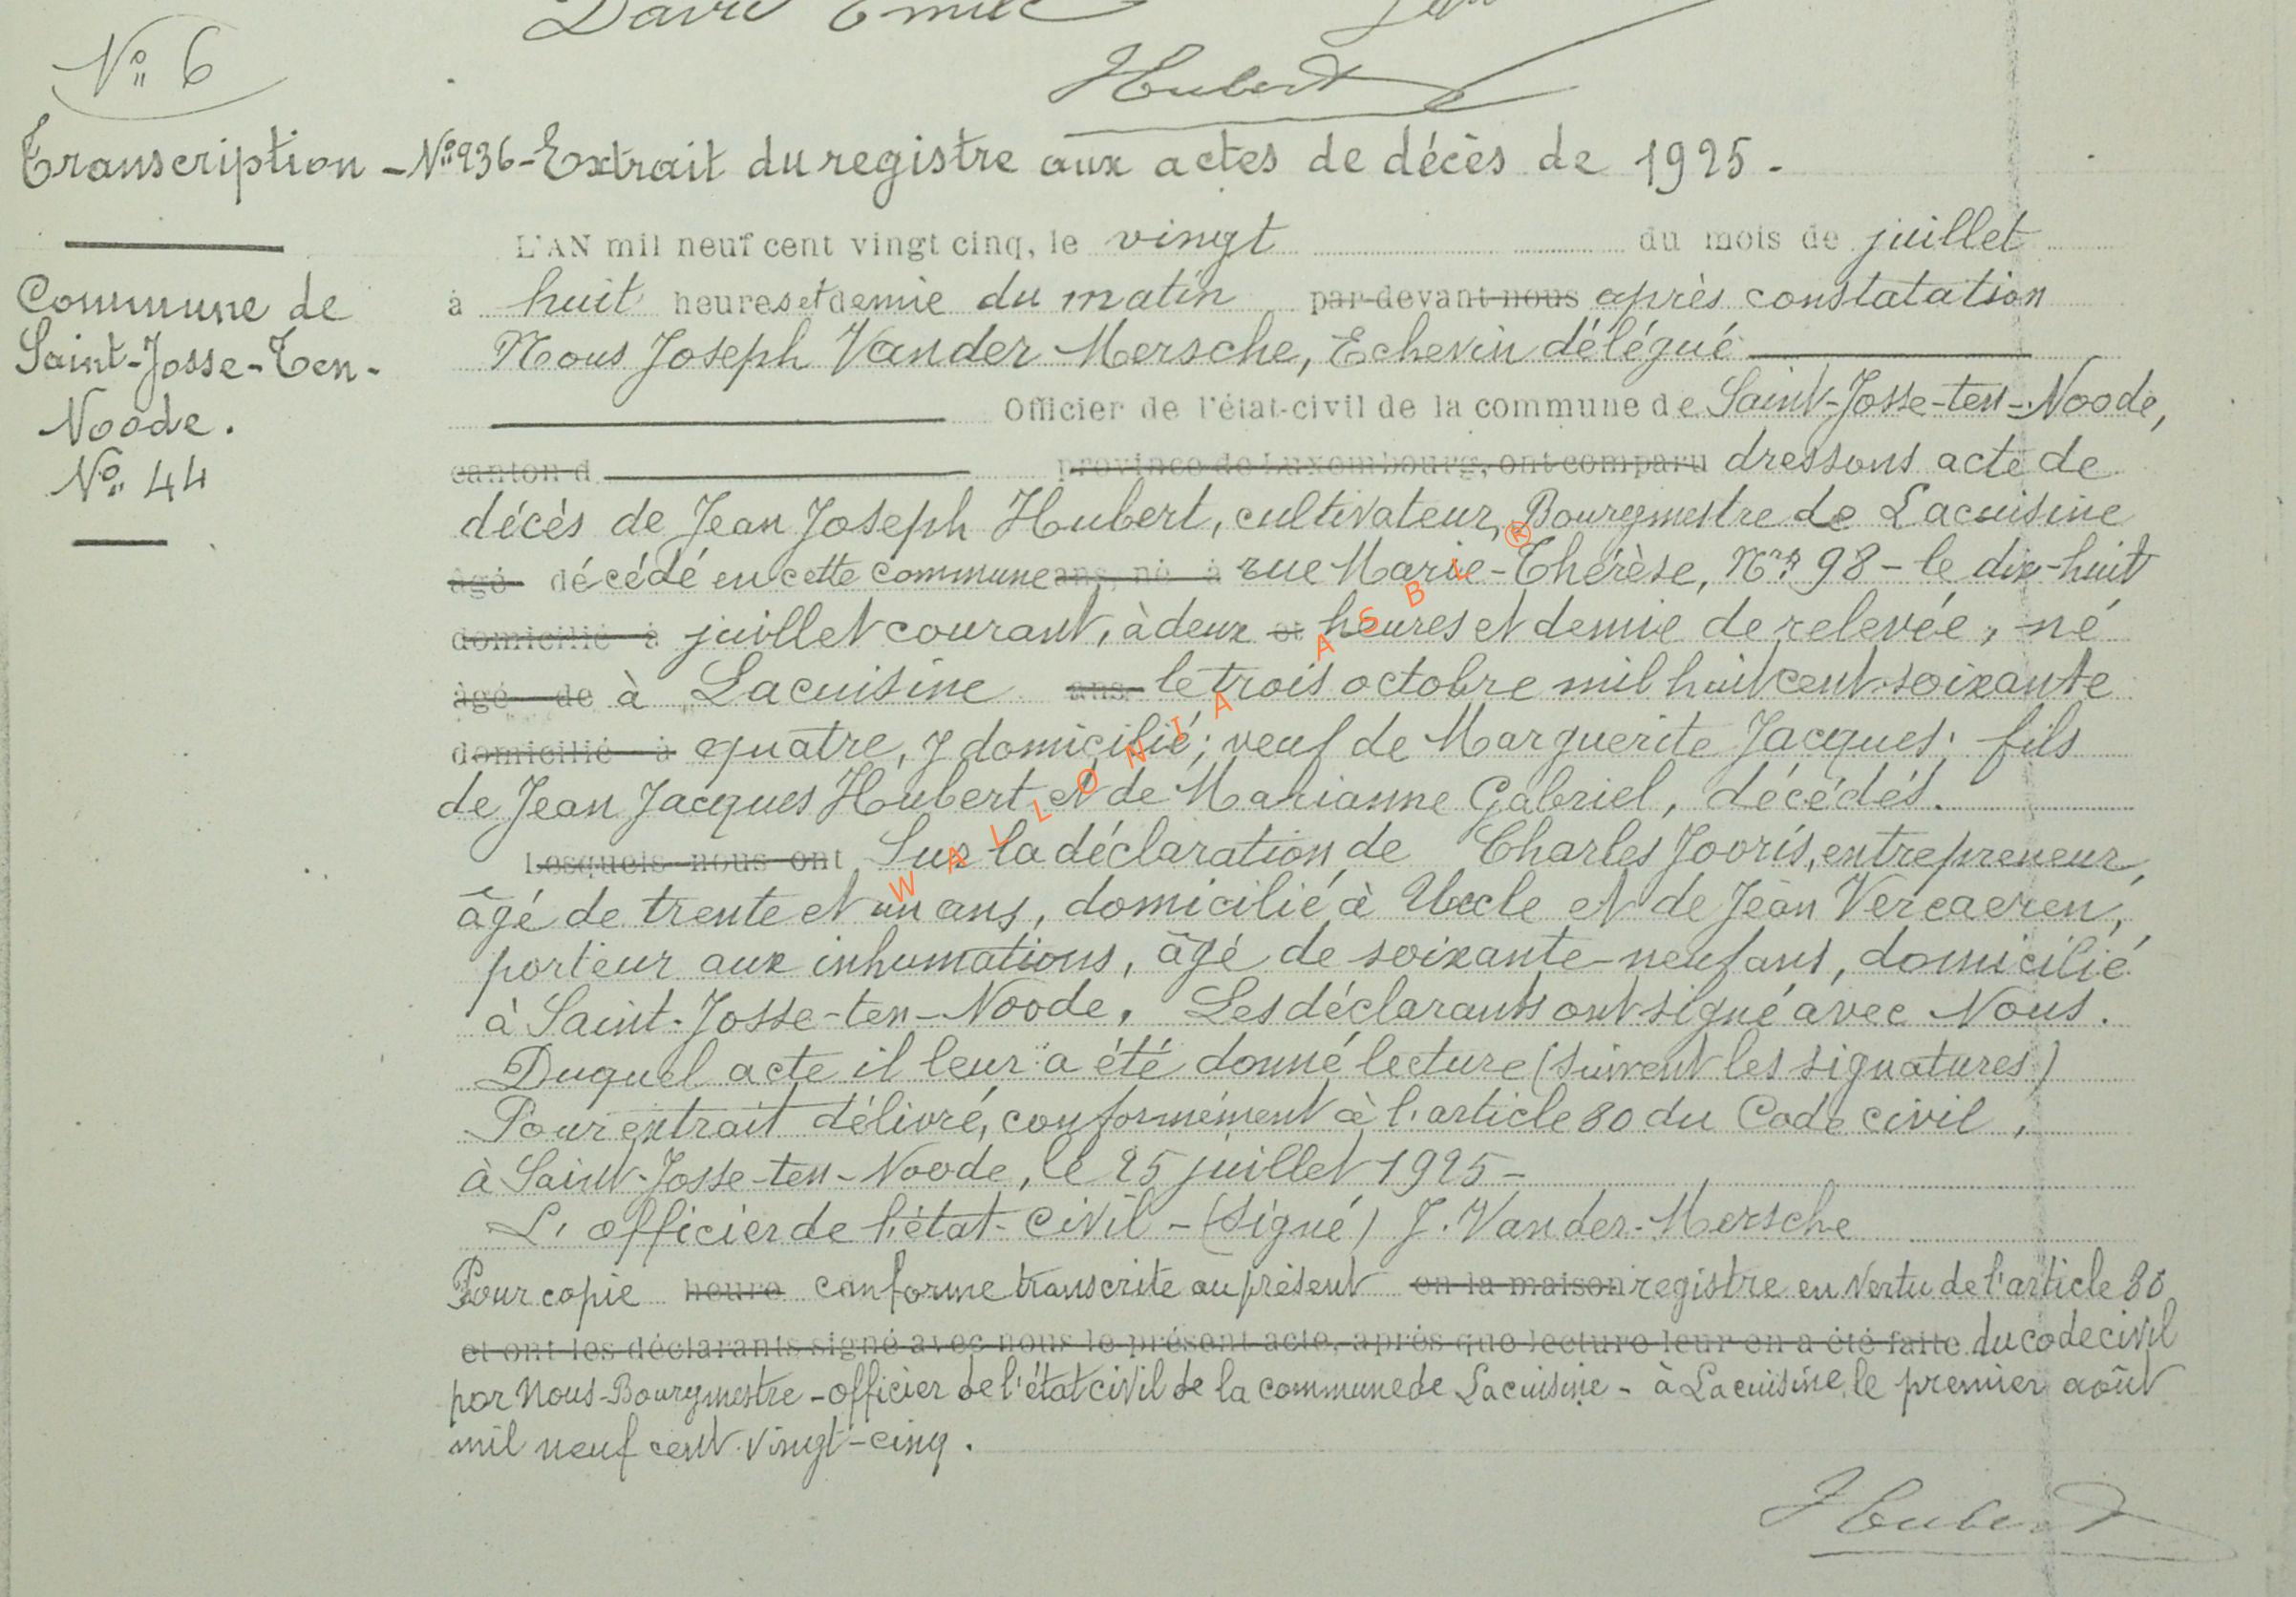 David Emile
Hubert
N° 6
Transcription - N° 936 - Extrait du registre aux actes de décès de 1925 -
L'AN mil neuf cent vingt cinq, le vingt du mois de juillet
à huit heures et demie du matin par-devant nous après constatation
Nous Joseph Vander Mersche, Echevin délégué
Officier de l'état-civil de la commune de Saint-Josse-ten-Noode,
canton d province de Luxembourg, ont comparu dressons acte de
décès de Jean Joseph Hubert, cultivateur, Bourgmestre de Lacuisine
âgé décédé en cette commune ans, né à rue Marie-Thérèse, 98 - le dix-huit
domicilié à juillet courant, à deux et heures et demie de relevée, né
âgé de à Lacuisine ans le trois octobre mil huit cent soixante
domicilié à quatre, y domicilié; veuf de Marguerite Jacques; fils
de Jean Jacques Hubert et de Marianne Gabriel, décédés.
Lesquels nous ont Sur la déclaration de Charles Jooris, entrepreneur,
âgé de trente et un ans, domicilié à Uccle et de Jean Vercaeren,
porteur aux inhumations, âgé de soixante-neuf ans, domicilié
à Saint-Josse-ten-Noode. Les déclarants ont signé avec Nous.
Duquel acte il leur a été donné lecture (suivent les signatures)
Pour extrait délivré, conformément à l'article 80 du Code civil,
à Saint-Josse-ten-Noode, le 25 juillet 1925 -
L'officier de l'état-civil - (signé) J. Vander-Mersche
Pour copie heure conforme transcrite au présent en la maison registre en vertu de l'article 80
et ont les déclarants signé avec nous le présent acte, après que lecture leur en a été faite du code civil
par Nous-Bourgmestre-officier de l'état civil de la commune de Lacuisine - à Lacuisine, le premier août
mil neuf cent vingt-cinq.
Hubert
Commune de
Saint-Josse-Ten-
Noode.
N° 44
WALLONIA ASBL ®